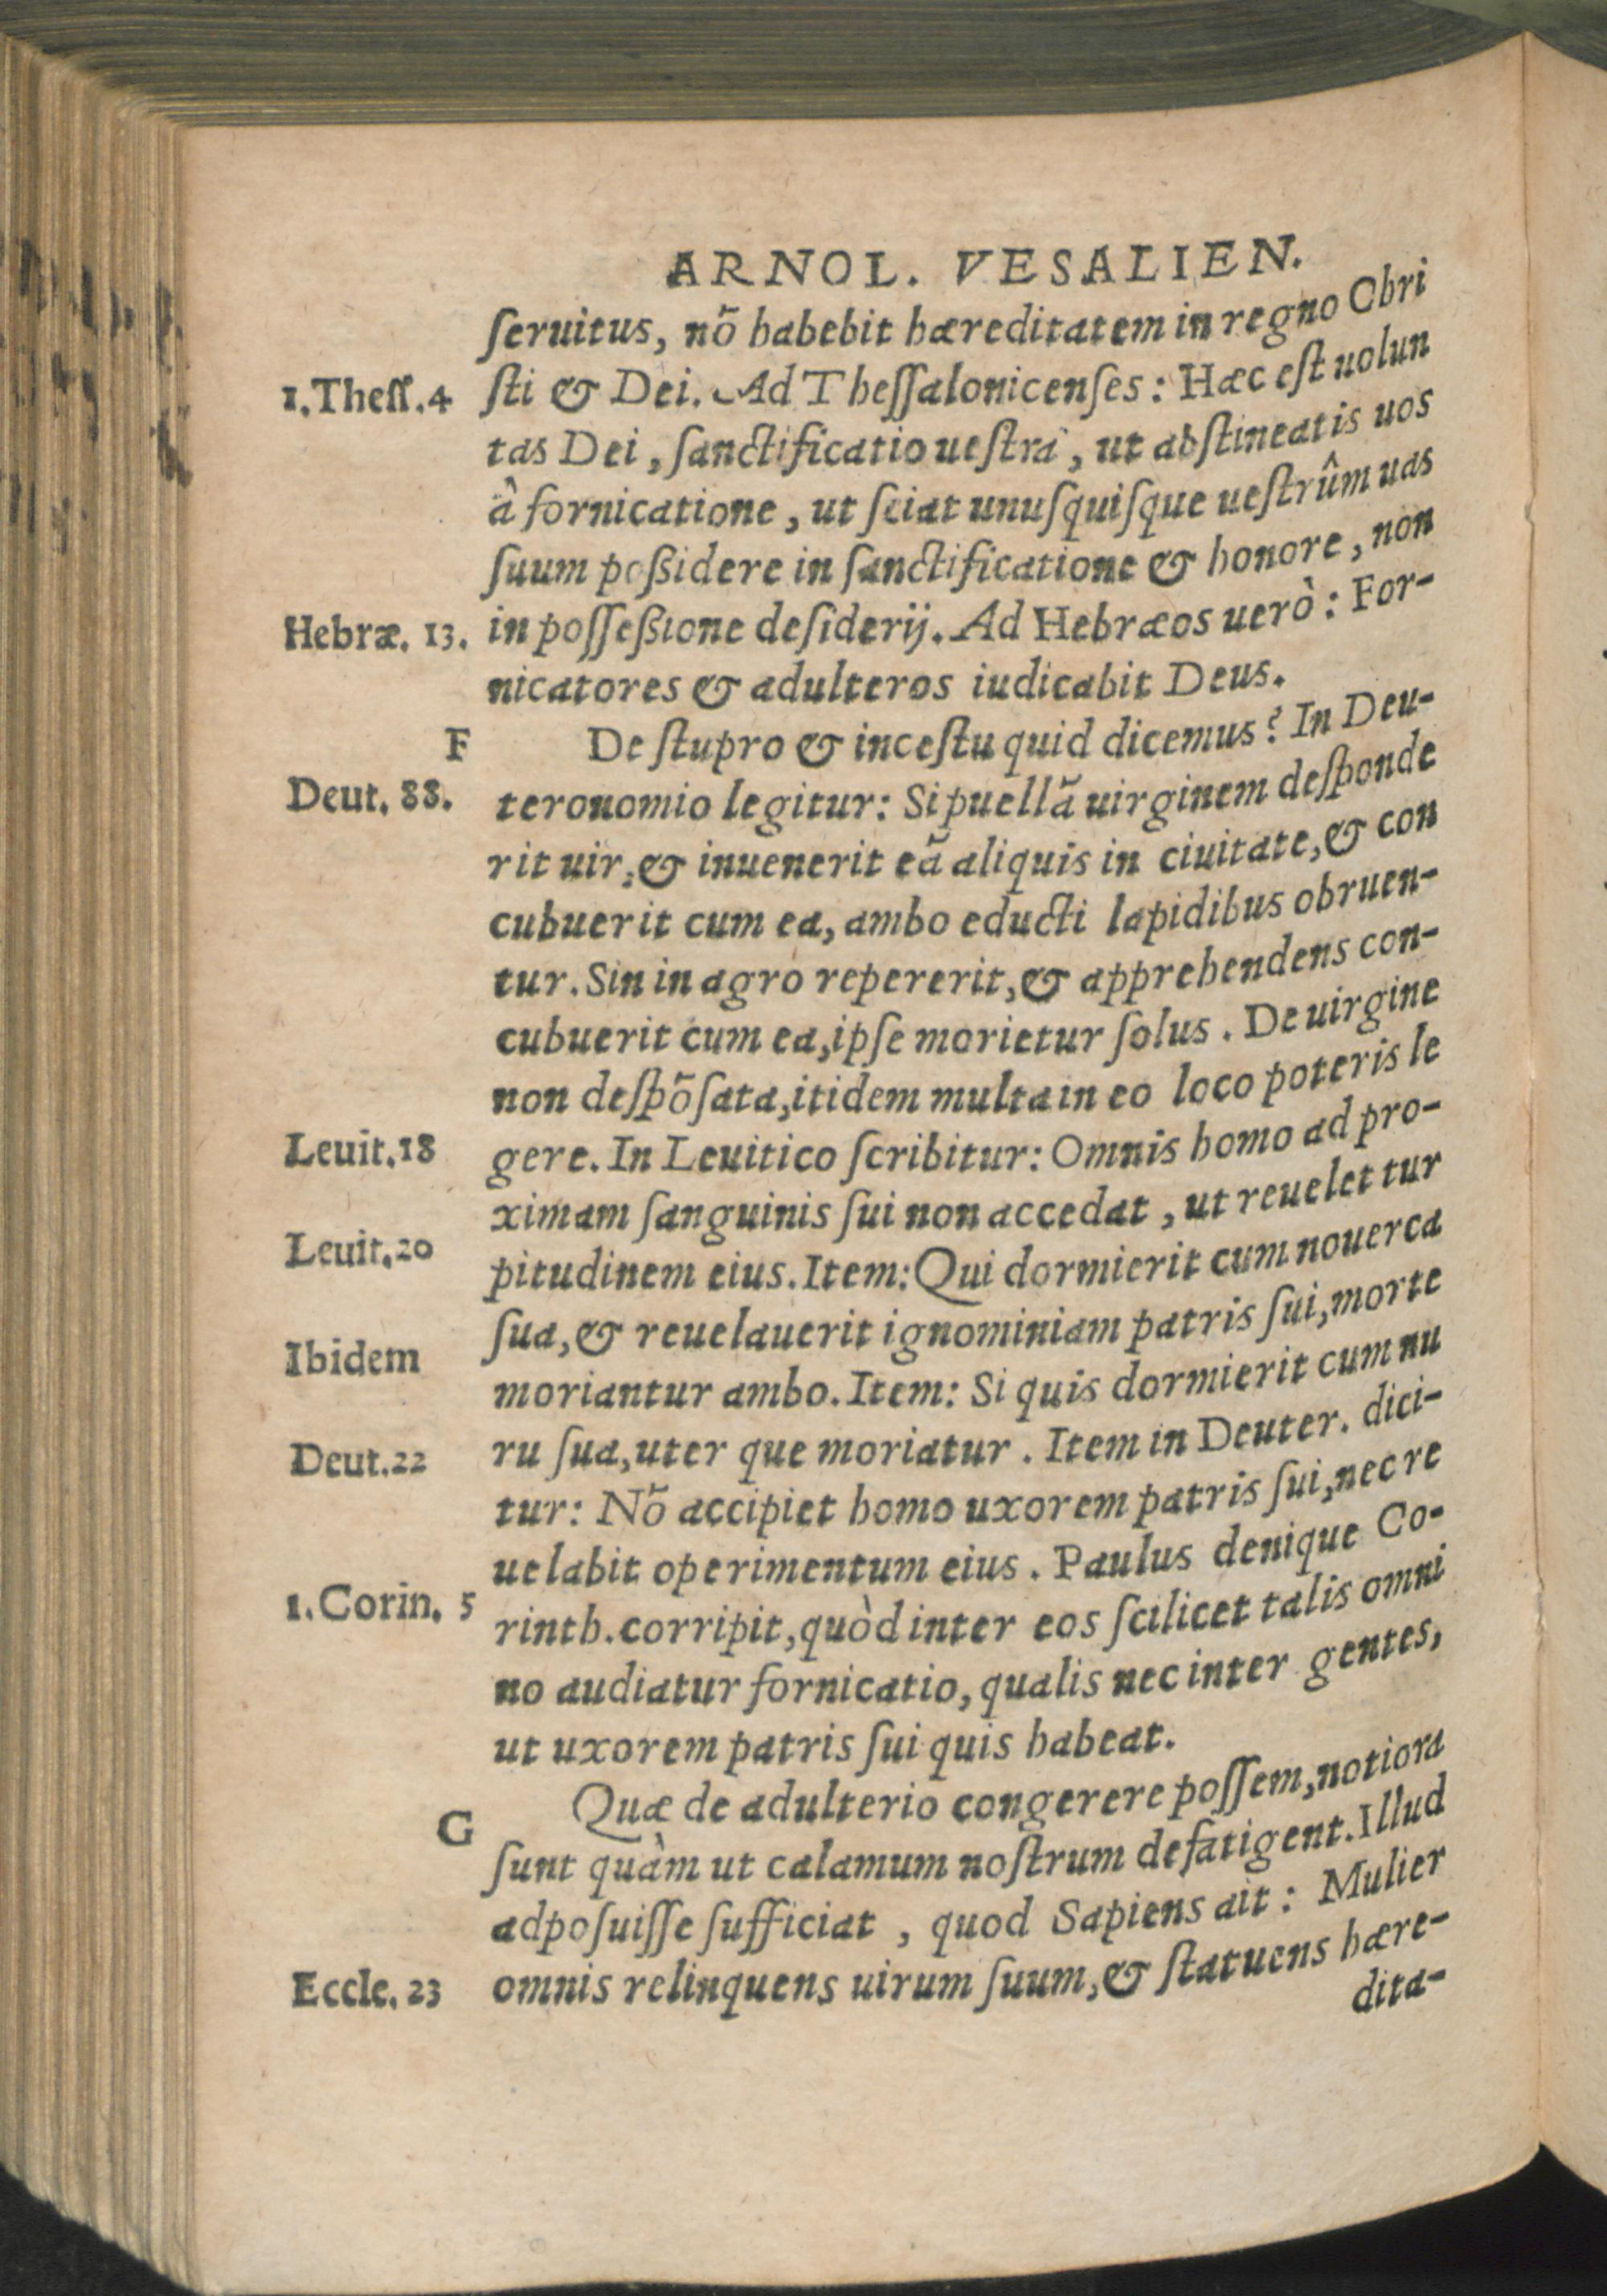 ARNOL. VESALIEN.
ſeruitus, nõ habebit hæreditatem in regno Chri
1. Theſſ. 4 ſti & Dei. Ad Theſſalonicenſes: Hæc eſt uolun
tas Dei, ſanctificatio ueſtra, ut abſtineatis uos
à fornicatione, ut ſciat unuſquiſque ueſtrûm uas
ſuum poßidere in ſanctificatione & honore, non
Hebræ. 13. in poſſeßione deſiderij. Ad Hebræos uerò: For-
nicatores & adulteros iudicabit Deus.
F De ſtupro & inceſtu quid dicemus? In Deu-
Deut. 88. teronomio legitur: Si puellã uirginem deſponde
rit uir, & inuenerit eã aliquis in ciuitate, & con
cubuerit cum ea, ambo educti lapidibus obruen-
tur. Sin in agro repererit, & apprehendens con-
cubuerit cum ea, ipſe morietur ſolus. De uirgine
non deſpõſata, itidem multa in eo loco poteris le
Leuit. 18 gere. In Leuitico ſcribitur: Omnis homo ad pro-
ximam ſanguinis ſui non accedat, ut reuelet tur
Leuit. 20 pitudinem eius. Item: Qui dormierit cum nouerca
ſua, & reuelauerit ignominiam patris ſui, morte
Ibidem moriantur ambo. Item: Si quis dormierit cum nu
ru ſua, uter que moriatur. Item in Deuter. dici-
Deut. 22 tur: Nõ accipiet homo uxorem patris ſui, nec re
uelabit operimentum eius. Paulus denique Co-
1. Corin. 5 rinth. corripit, quòd inter eos ſcilicet talis omni
no audiatur fornicatio, qualis nec inter gentes,
ut uxorem patris ſui quis habeat.
G Quæ de adulterio congerere poſſem, notiora
ſunt quàm ut calamum noſtrum defatigent. Illud
adpoſuiſſe ſufficiat, quod Sapiens ait: Mulier
Eccle. 23 omnis relinquens uirum ſuum, & ſtatuens hære-
dita-